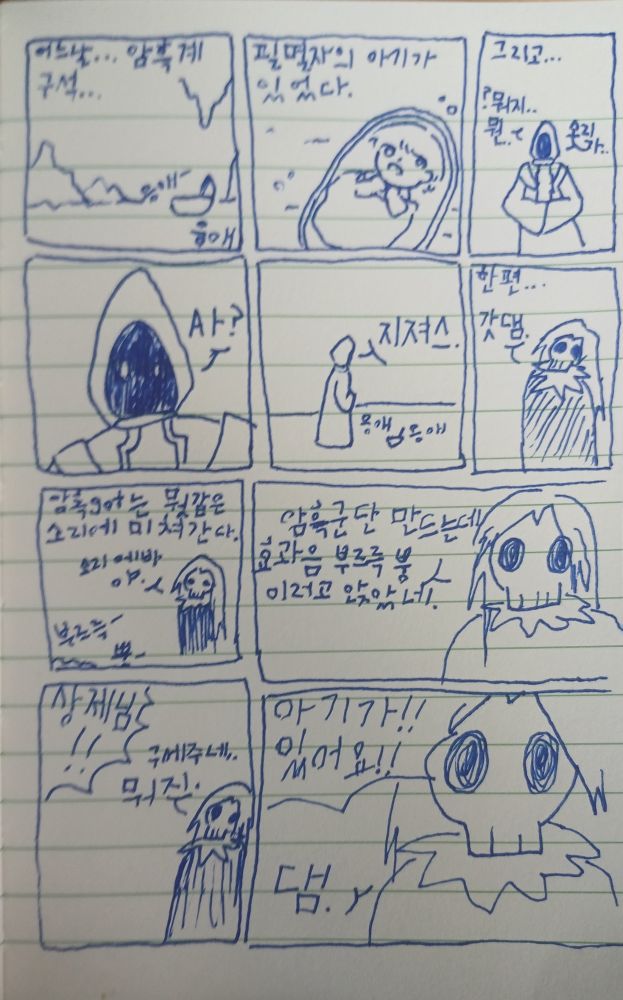 어느날... 암흑계
구석...
응애~
응애
필멸자의 아기가
있었다.
그리고...
?뭐지..
뭔.
옷리
가..
AI?
지져스.
응애 응애
한편...
갓댐.
암흑got는 뭣같은
소리에 미쳐간다.
소리 에바
야.
부르륵~
뿡~
암흑군단 만드는데
효과음 부르륵 뿡
이러고 앉았네.
상제님
!!
구에주네..
뭐진.
아기가!!
있어요!!
댐.